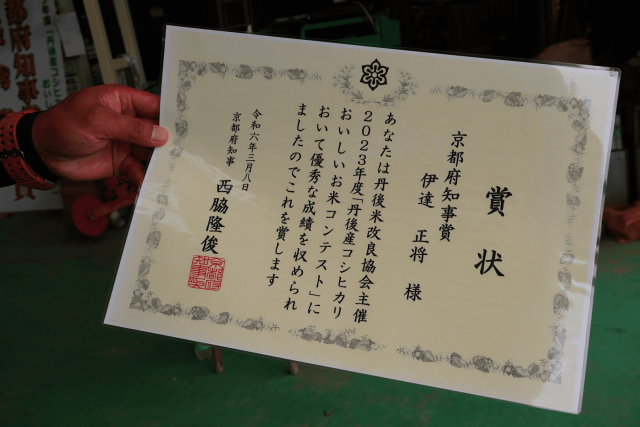 賞状
京都府知事賞
伊達 正将 様
あなたは丹後米改良協会主催
2023年度「丹後産コシヒカリ
おいしいお米コンテスト」に
おいて優秀な成績を収められ
ましたのでこれを賞します
令和六年三月八日
京都府知事 西脇隆俊
都府知事賞